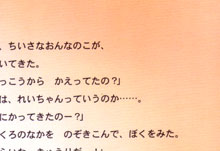 、ちいさなおんなのこが、
いてきた。
っこうから　かえってたの？」
は、れいちゃんっていうのか……。
にかってきたのー？」
くろのなかを　のぞきこんで、ぼくをみた。